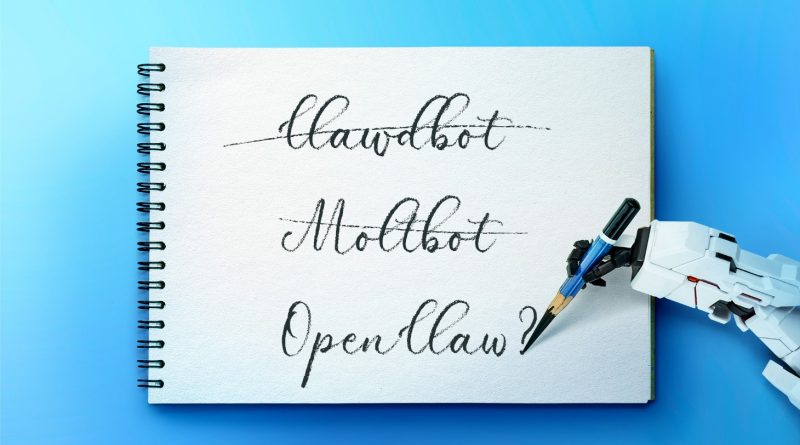 Clawdbot
Moltbot
OpenClaw?